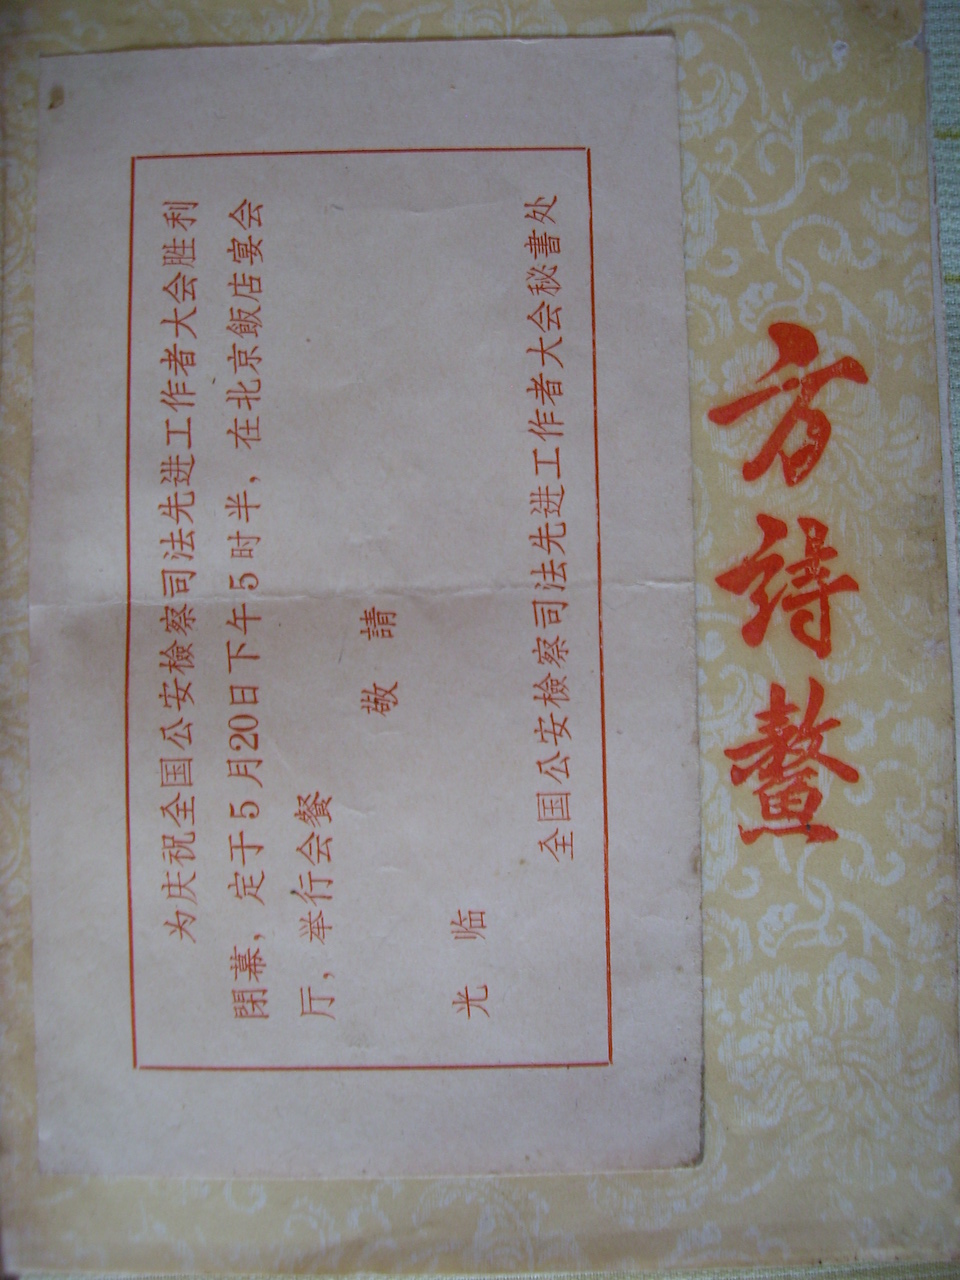 为庆祝全国公安檢察司法先进工作者大会胜利
閉幕，定于5月20日下午5时半，在北京飯店宴会
厅，举行会餐
敬請
光临
全国公安檢察司法先进工作者大会秘書处
方詩鳌